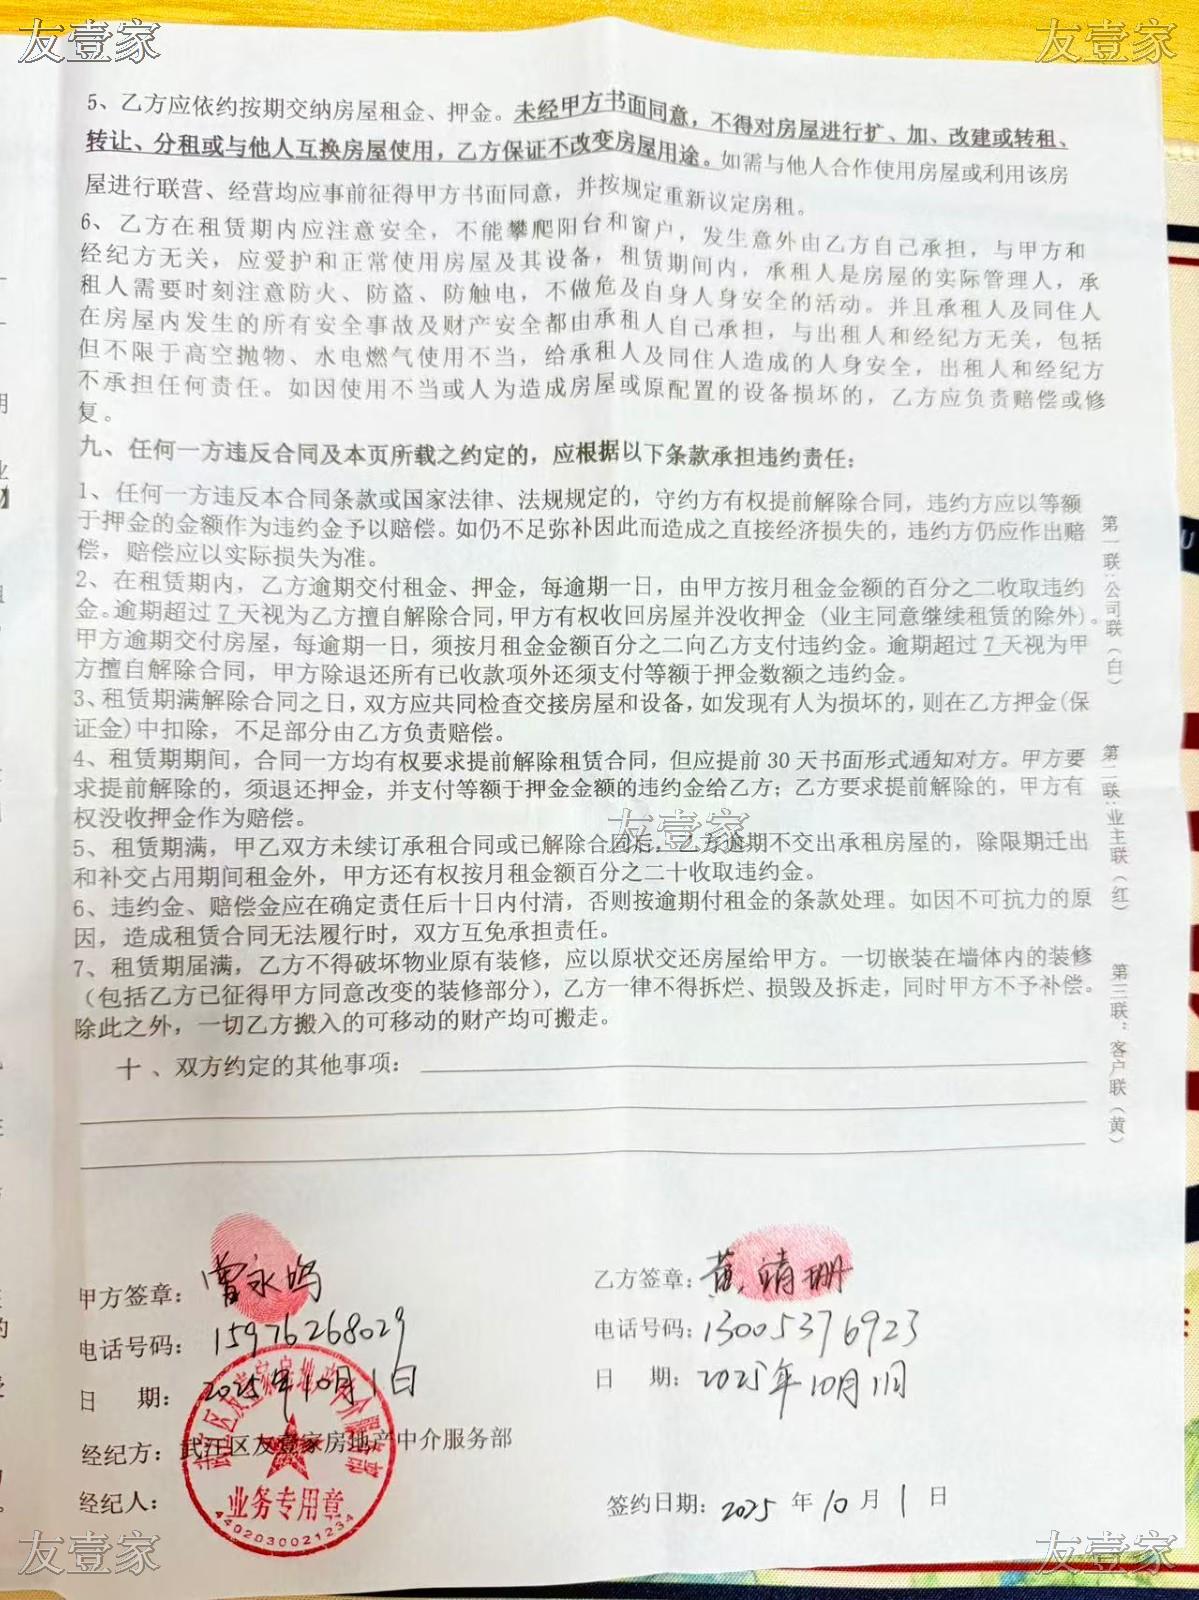 友壹家
友壹家
5、乙方应依约按期交纳房屋租金、押金。未经甲方书面同意，不得对房屋进行扩、加、改建或转租、
转让、分租或与他人互换房屋使用，乙方保证不改变房屋用途。如需与他人合作使用房屋或利用该房
屋进行联营、经营均应事前征得甲方书面同意，并按规定重新议定房租。
6、乙方在租赁期内应注意安全，不能攀爬阳台和窗户，发生意外由乙方自己承担，与甲方和
经纪方无关，应爱护和正常使用房屋及其设备，租赁期间内，承租人是房屋的实际管理人，承
租人需要时刻注意防火、防盗、防触电，不做危及自身人身安全的活动。并且承租人及同住人
在房屋内发生的所有安全事故及财产安全都由承租人自己承担，与出租人和经纪方无关，包括
但不限于高空抛物、水电燃气使用不当，给承租人及同住人造成的人身安全，出租人和经纪方
不承担任何责任。如因使用不当或人为造成房屋或原配置的设备损坏的，乙方应负责赔偿或修
复。
九、任何一方违反合同及本页所载之约定的，应根据以下条款承担违约责任：
1、任何一方违反本合同条款或国家法律、法规规定的，守约方有权提前解除合同，违约方应以等额
于押金的金额作为违约金予以赔偿。如仍不足弥补因此而造成之直接经济损失的，违约方仍应作出赔
偿，赔偿应以实际损失为准。
2、在租赁期内，乙方逾期交付租金、押金，每逾期一日，由甲方按月租金金额的百分之二收取违约
金。逾期超过 7 天视为乙方擅自解除合同，甲方有权收回房屋并没收押金（业主同意继续租赁的除外）。
甲方逾期交付房屋，每逾期一日，须按月租金金额百分之二向乙方支付违约金。逾期超过 7 天视为甲
方擅自解除合同，甲方除退还所有已收款项外还须支付等额于押金数额之违约金。
3、租赁期满解除合同之日，双方应共同检查交接房屋和设备，如发现有人为损坏的，则在乙方押金(保
证金)中扣除，不足部分由乙方负责赔偿。
4、租赁期期间，合同一方均有权要求提前解除租赁合同，但应提前 30 天书面形式通知对方。甲方要
求提前解除的，须退还押金，并支付等额于押金金额的违约金给乙方；乙方要求提前解除的，甲方有
权没收押金作为赔偿。
友壹家
5、租赁期满，甲乙双方未续订承租合同或已解除合同后，乙方逾期不交出承租房屋的，除限期迁出
和补交占用期间租金外，甲方还有权按月租金额百分之二十收取违约金。
6、违约金、赔偿金应在确定责任后十日内付清，否则按逾期付租金的条款处理。如因不可抗力的原
因，造成租赁合同无法履行时，双方互免承担责任。
7、租赁期届满，乙方不得破坏物业原有装修，应以原状交还房屋给甲方。一切嵌装在墙体内的装修
（包括乙方已征得甲方同意改变的装修部分），乙方一律不得拆烂、损毁及拆走，同时甲方不予补偿。
除此之外，一切乙方搬入的可移动的财产均可搬走。
十、双方约定的其他事项：
第一联:公司联（白）
第二联:业主联（红）
第三联：客户联（黄）
甲方签章：曾永
电话号码：15976268029
日 期：2025年10月1日
经纪方：武江区友壹家房地产中介服务部
经纪人：
乙方签章：黄靖珊
电话号码：13005376923
日 期：2025年10月1日
签约日期：2025 年 10 月 1 日
武江区友壹家房地产中介服务部
业务专用章
4402030021234
友壹家
友壹家